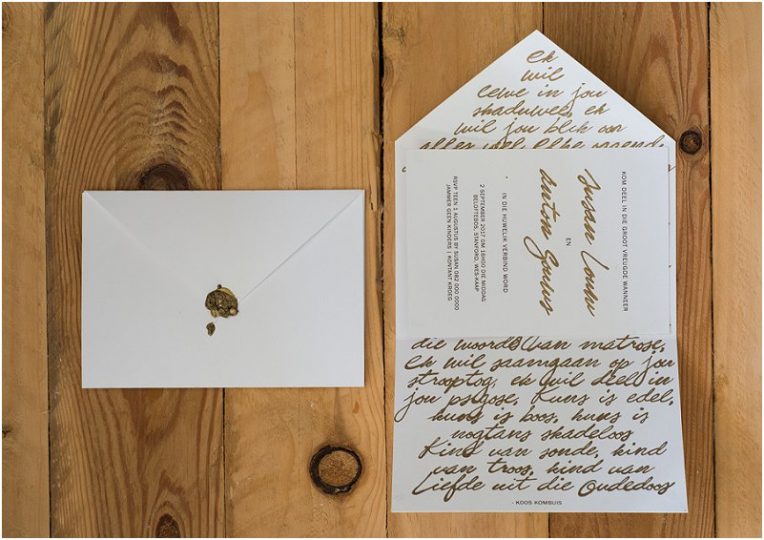 Ek
wil
lewe in jou
skaduwee, ek
wil jou blik oor
alles voel
KOM DEEL IN DIE GROOT VREUGDE WANNEER
Susan Louw
EN
Anton Gouws
IN DIE HUWELIK VERBIND WORD
2 SEPTEMBER 2017 OM 16H00 DIE MIDDAG
BELOFTEBOS, STANFORD, WES-KAAP
RSVP TEEN 1 AUGUSTUS BY SUSAN 082 000 0000
JAMMER GEEN KINDERS | KONTANT KROEG
die woorde van matrose,
Ek wil saamgaan op jou
strooptog, ek wil deel in
jou psigose, Kuns is edel,
kuns is boos, kuns is
nogtans skadeloos
Kind van sonde, kind
van troos, kind van
Liefde uit die Oudedoos
- KOOS KOMBUIS